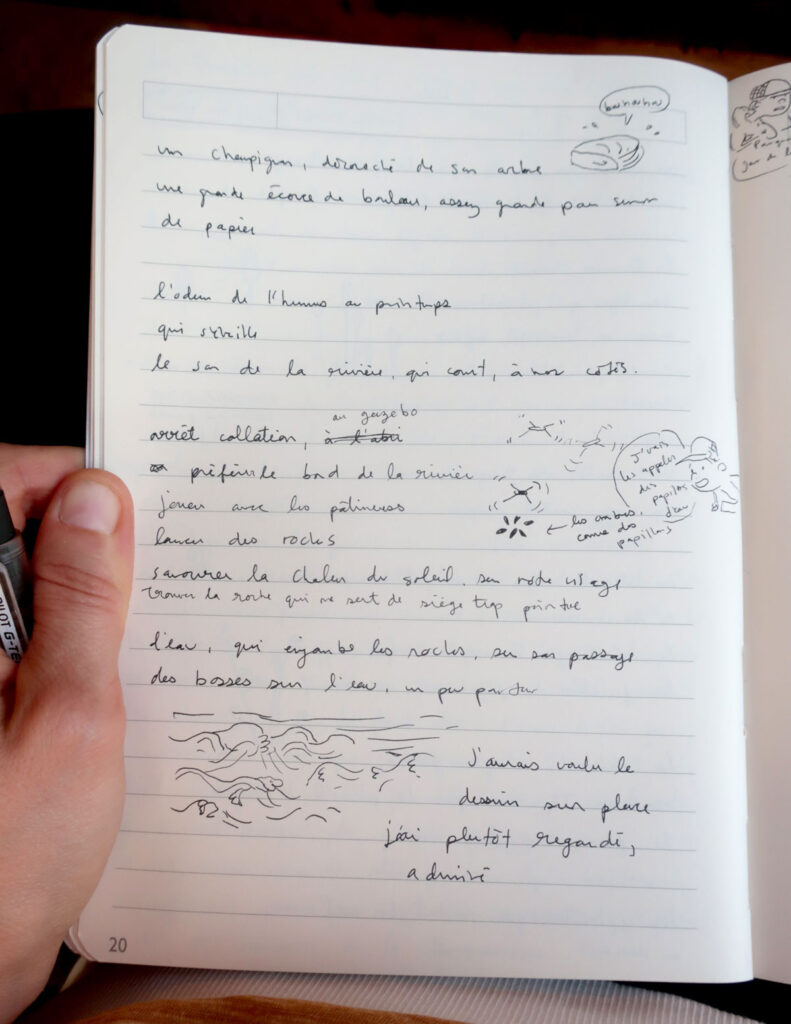 bahahaha
un champignon, décroché de son arbre
une grande écorce de bouleau, assez grande pour servir
de papier
l'odeur de l'humus au printemps
qui
le son de la rivière, qui court, à nos côtés.
au gazebo
arrêt collation, à l'abri
préférer le bord de la rivière
jouer avec les patineuses
lancer des roches
j'vais
les appeler
des
papillons
d'eau
← les ombres,
comme des
papillons
savourer la chaleur du soleil, sur notre visage
trouver la roche qui me sert de siège trop pointue
l'eau, qui enjambe les roches, sur son passage
des bosses sur l'eau, un peu partout
J'aurais voulu le
dessiner sur place
j'ai plutôt regardé,
admiré
20
PILOT G-TE